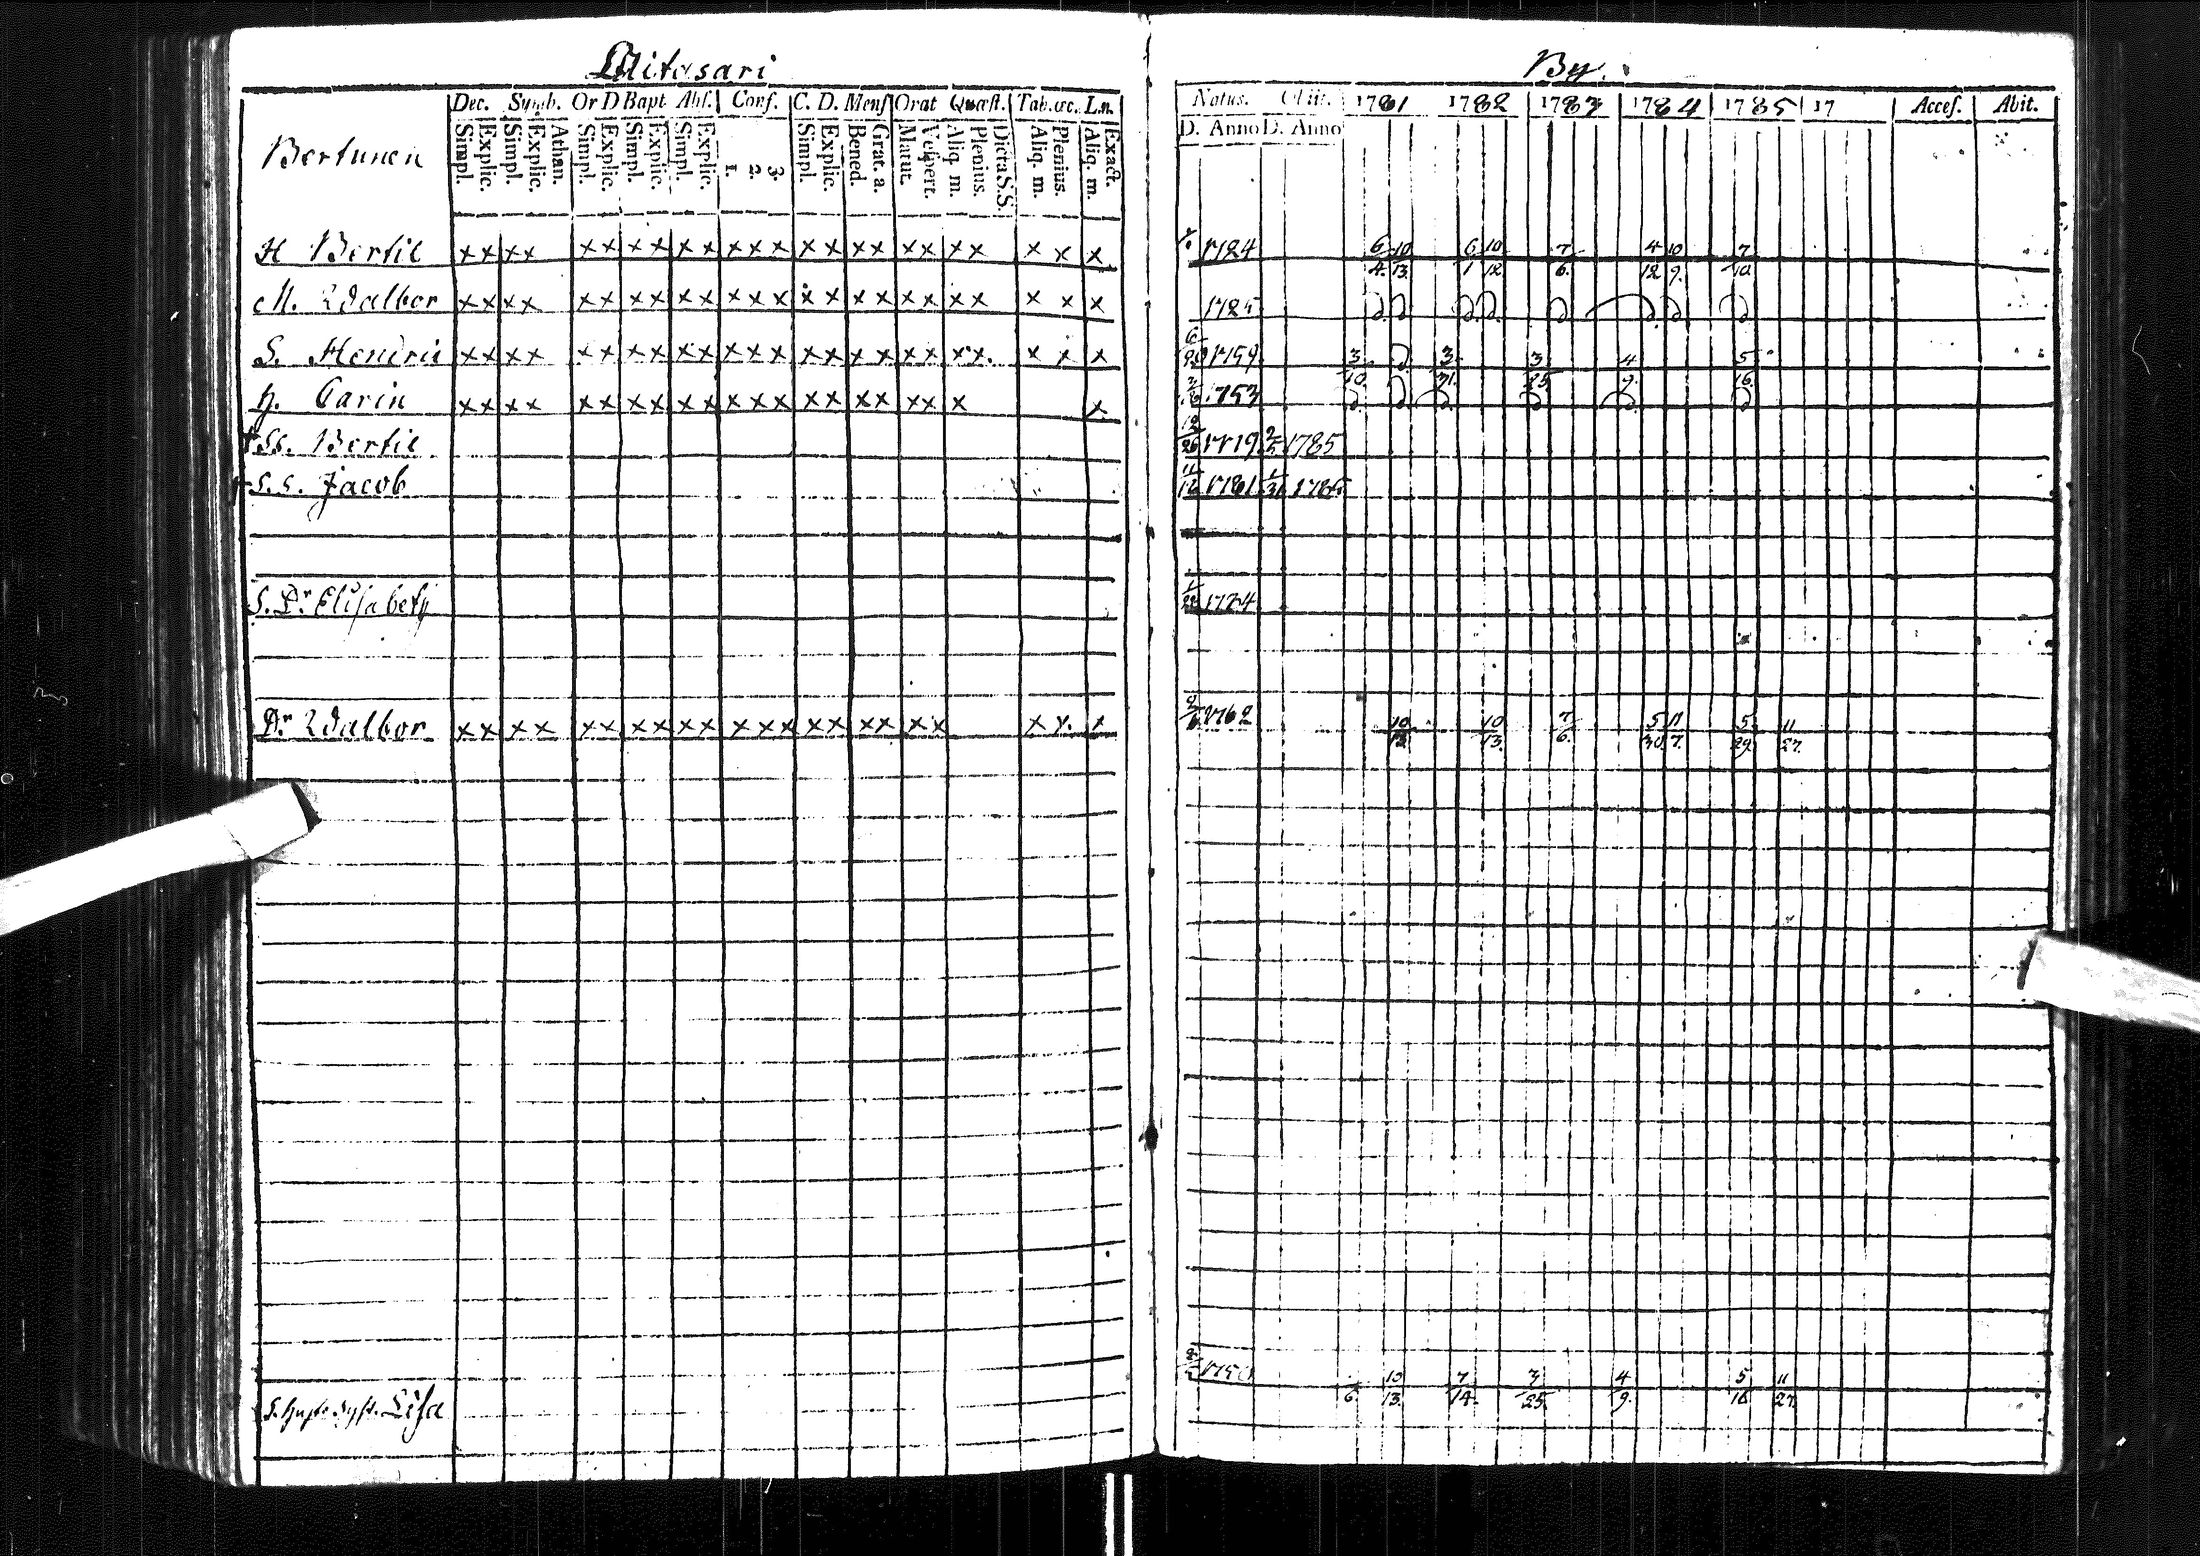 Pitosari By.
Bertunen
Dec. Symb. Or D Bapt Abs. Conf. C. D. Mens Orat Quæst. Tab. œc. L.n.
Simpl. Explic. Simpl. Explic. Athan. Simpl. Explic. Simpl. Explic. Simpl. Explic. 1. 2. 3. Simpl. Explic. Bened. Grat. a. Matut. Vespert. Aliq. m. Plenius. Dicta S.S. Aliq. m. Plenius. Aliq. m. Exact.
Natus. Obiit. 1781 1782 1783 1784 1785 17 Acces. Abit.
D. Anno D. Anno
H Bertil ×× ×× ×× ×× ×× ××× ×× ×× ×× ×× × × × 1724 6/4 10/13 6/1 10/12 7/6 4/12 10/9 7/10
M. Walbor ×× ×× ×× ×× ×× ××× ×× ×× ×× ×× × × ×
S. Hendric ×× ×× ×× ×× ×× ××× ×× ×× ×× ×× × × × 1759 3/10 3/31 3/25 4/9 5/16
h. Carin ×× ×× ×× ×× ×× ××× ×× ×× ×× × × 1753
† Ss. Bertil 1785
† S.s. Jacob 11/12 1781
S. Dr Elisabeth
Dr Walbor ×× ×× ×× ×× ×× ××× ×× ×× ×× × × × 1762 10/13 10/13 7/6 5/30 11/7 5/29 11/27
Lisa 10/13 7/14 3/25 4/9 5/16 11/27